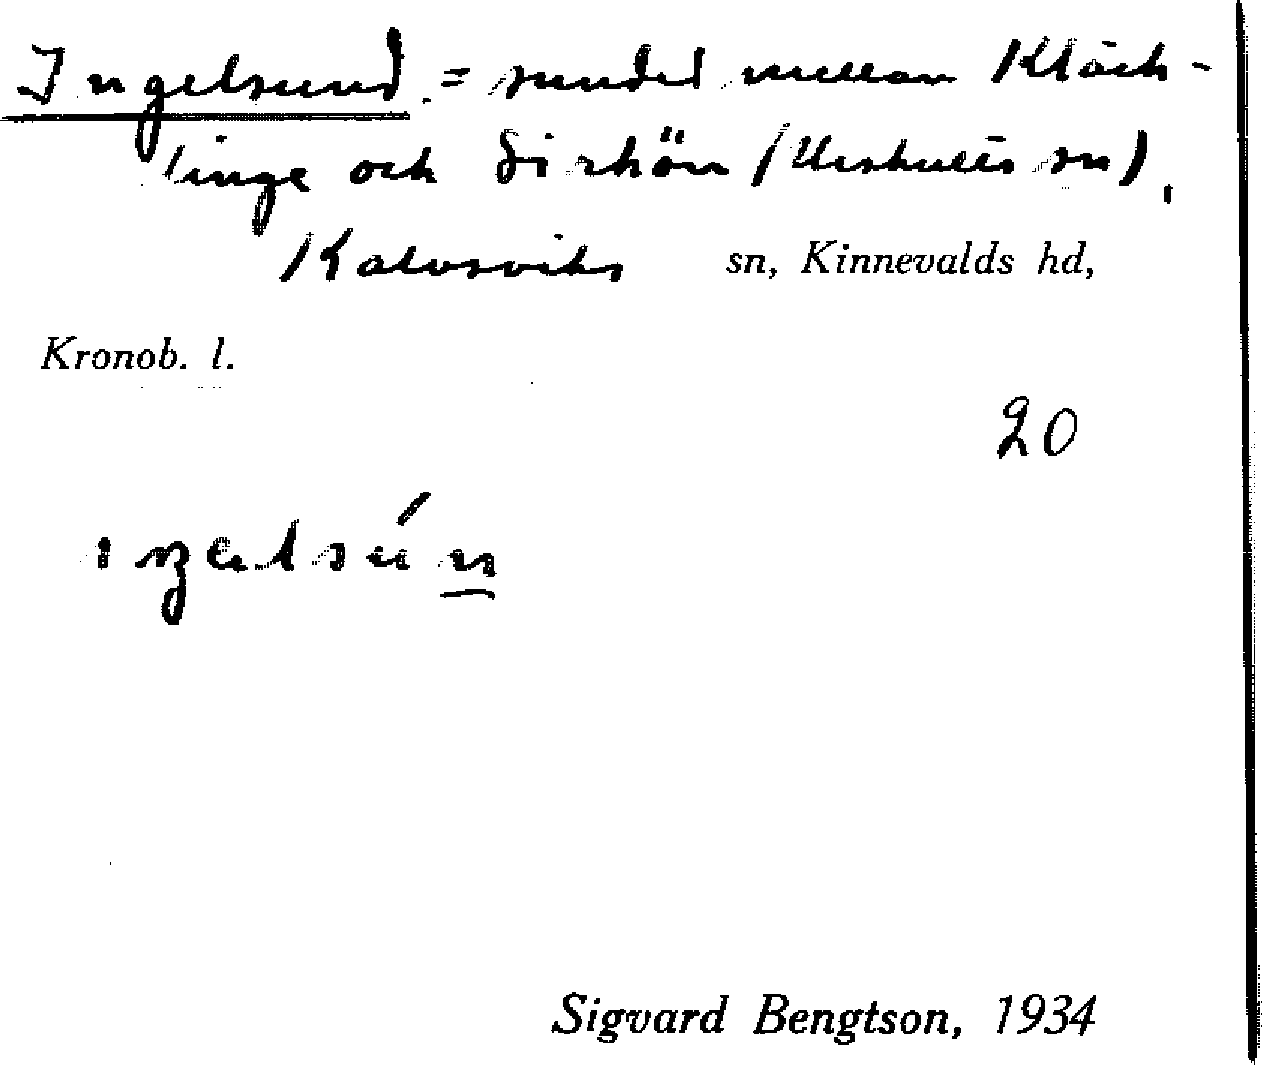 Ingelsund = sundet mellan Kläck-
linge och Sirkön (Urshults sn),
Kalvsviks sn, Kinnevalds hd,
Kronob. l.
20
Sigvard Bengtson, 1934